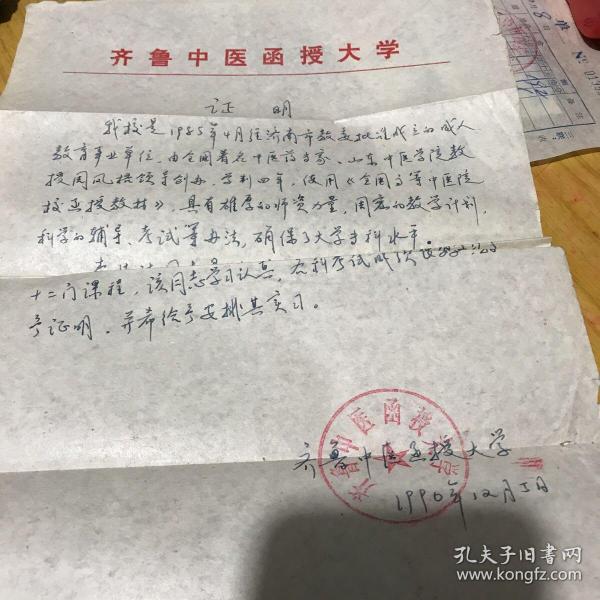 齐鲁中医函授大学
证 明
我校是1985年4月经济南市教委批准成立的成人
教育事业单位，由全国著名中医药专家、山东中医学院教
授周凤梧领导创办，学制四年，使用《全国高等中医院
校函授教材》，具有雄厚的师资力量，周密的教学计划，
科学的辅导、考试等办法，确保了大学专科水平。
十二门课程，该同志学习认真，各科考试成绩
予证明，并希给予安排其实习。
齐鲁中医函授大学
1990年12月5日
齐鲁中医函授大学
孔夫子旧书网
www.kongfz.com